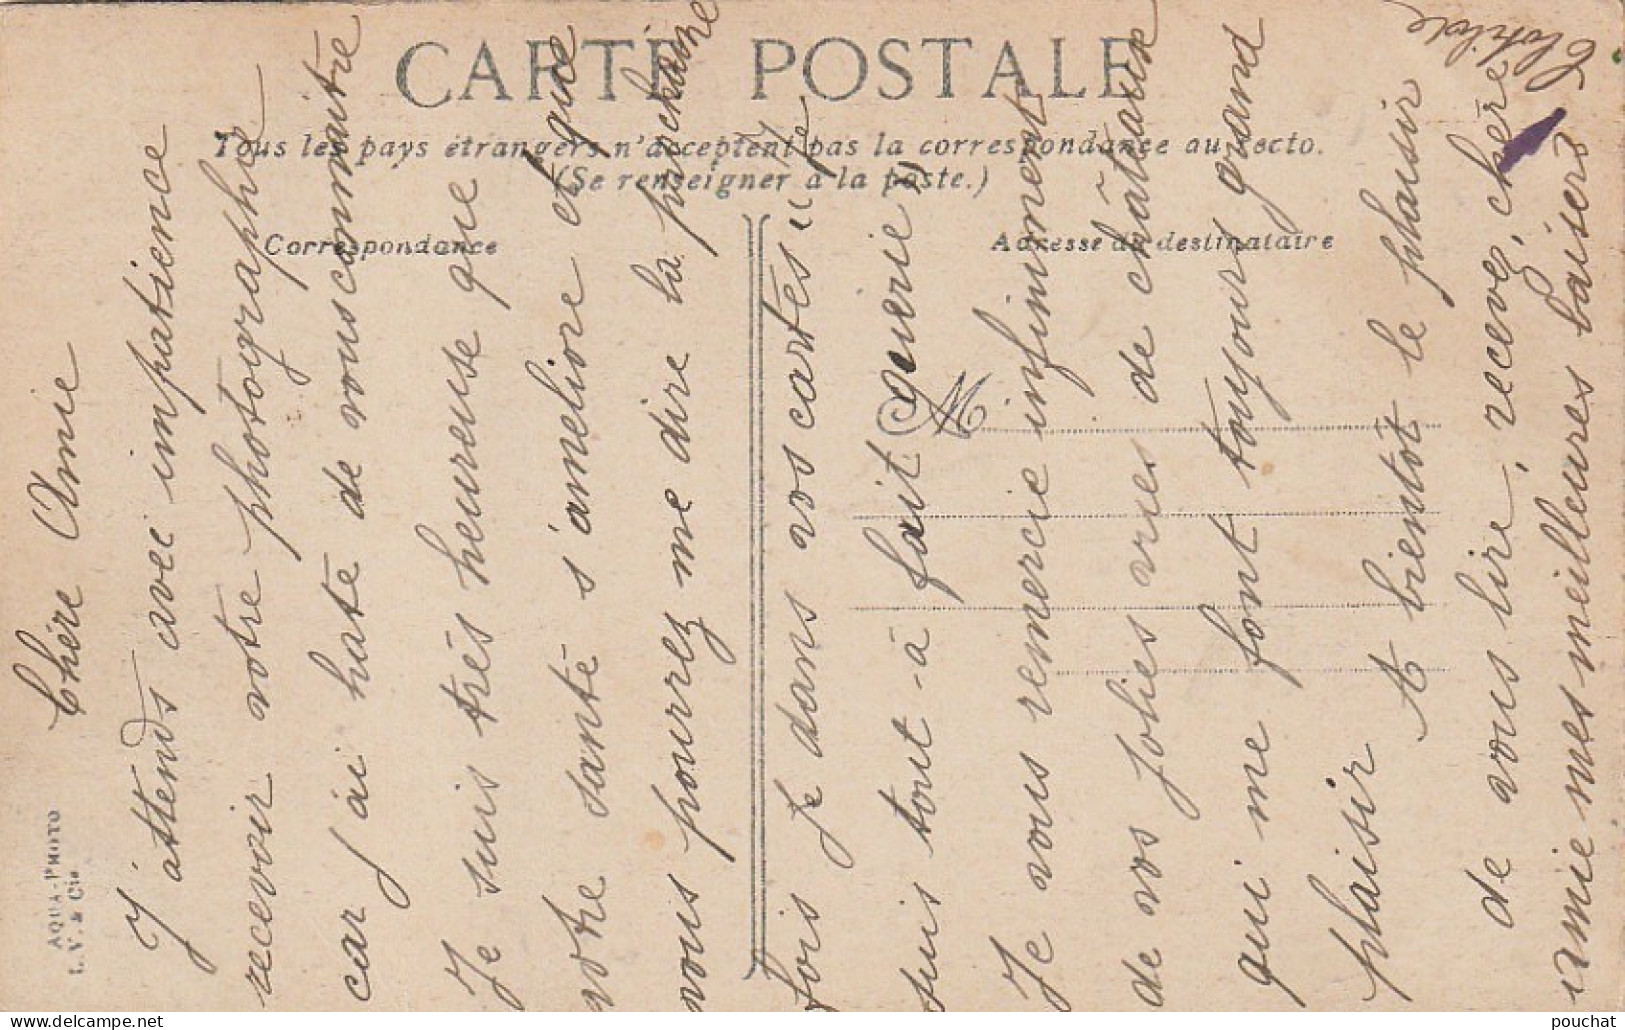 CARTE POSTALE
Tous les pays étrangers n'acceptent pas la correspondance au recto.
(Se renseigner à la poste.)
Correspondance
Adresse du destinataire
M
AQUA-PHOTO
L. V. & Cie
Chère Amie
J'attends avec impatience
recevoir votre photographie
car j'ai hate de vous connaitre
Je suis très heureuse que
votre santé s'améliore et que
vous pourrez me dire la prochaine
fois je dans vos cartes "je
suis tout-à fait guerie"
Je vous remercie infiniment
de vos jolies vues de châteaux
qui me font toujours grand
plaisir A bientôt le plaisir
de vous lire, recevez, chère
amie mes meilleures baisers
Clotilde
pouchat